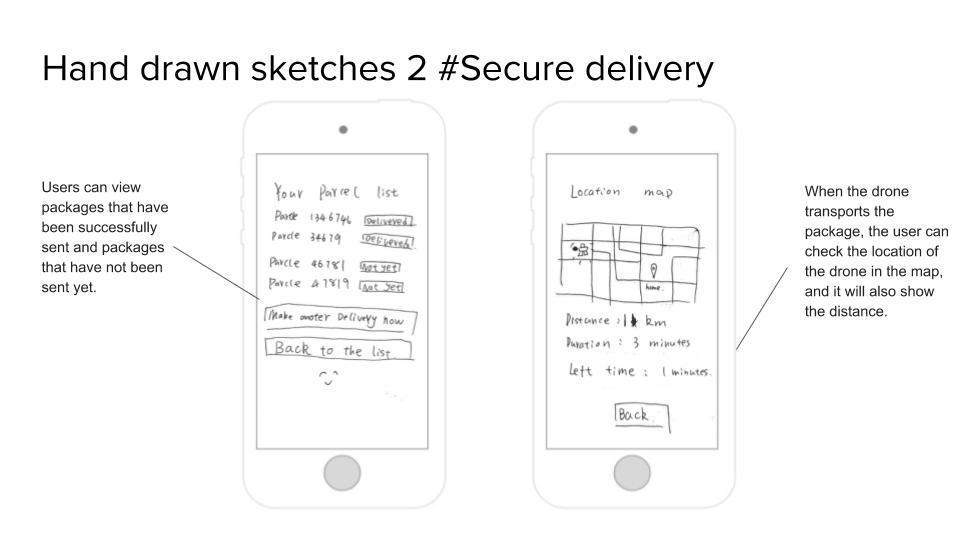 Hand drawn sketches 2 #Secure delivery
Users can view
packages that have
been successfully
sent and packages
that have not been
sent yet.
Your Parcel list
Parcle 1346746 Delivered
Parcle 34679 Delivered
Parcle 46781 Not yet
Parcle 47819 Not yet
Make anoter Delivery now
Back to the list
Location map
home.
Distance : 1 km
Duration : 3 minutes
Left time : 1 minutes.
Back
When the drone
transports the
package, the user can
check the location of
the drone in the map,
and it will also show
the distance.